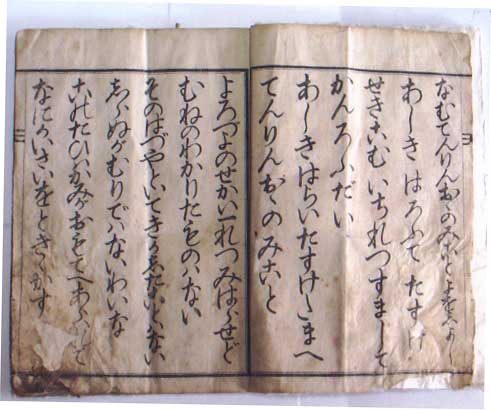 なむてんりんおうのみこと
あしきはろふて たすけ
せきこむ いちれつすまして
かんろふだい
あしきはらいたすけたまへ
てんりんおうのみこと
よろつよのせかい一れつみはらせど
むねのわかりたものハない
そのはづやといてきかしたことハない
しらぬがむりでハないわいな
このたびハかみがおもてへあらハれて
なにかいさいをとききかす